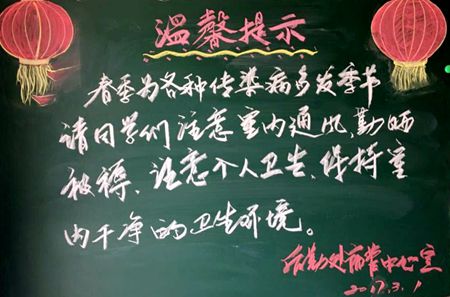 温馨提示
春季为各种传染病多发季节
请同学们注意室内通风,勤晒
被褥、注意个人卫生、保持室
内干净的卫生环境。
后勤处宿管中心宣
2017.3.1